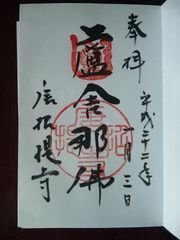 奉拝
平成二十二年
一月三日
盧舎那佛
唐招提寺